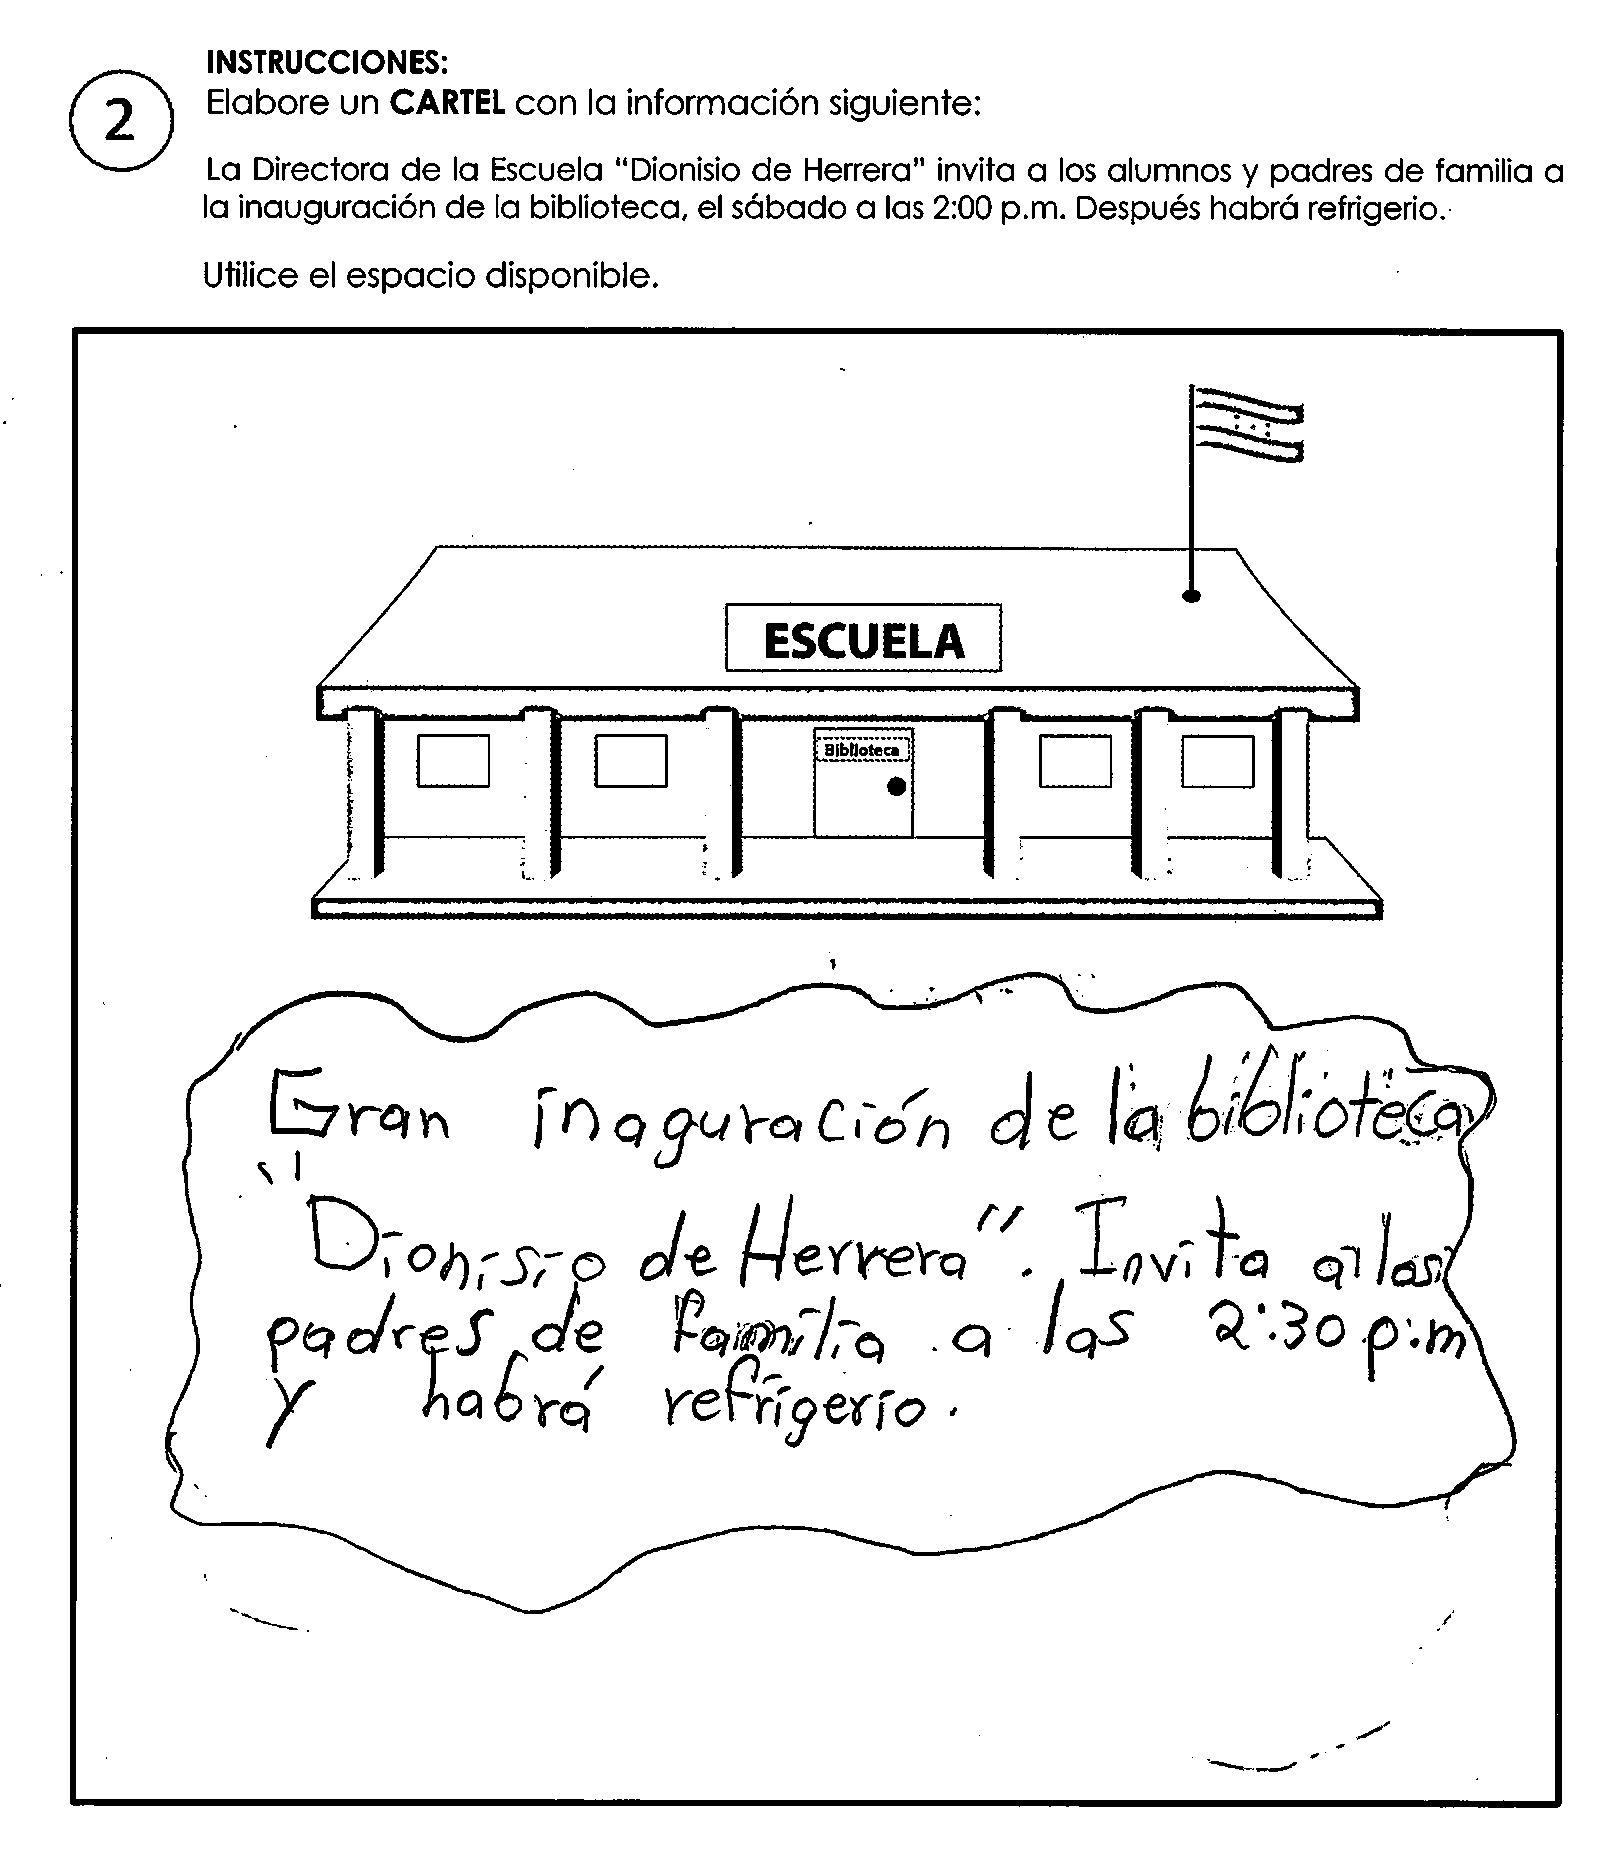 INSTRUCCIONES:
2
Elabore un CARTEL con la información siguiente:
La Directora de la Escuela “Dionisio de Herrera” invita a los alumnos y padres de familia a
la inauguración de la biblioteca, el sábado a las 2:00 p.m. Después habrá refrigerio.
Utilice el espacio disponible.
ESCUELA
Biblioteca
Gran inaguración de la biblioteca
"Dionisio de Herrera". Invita a los
padres de familia a las 2:30 p.m
y habrá refrigerio.